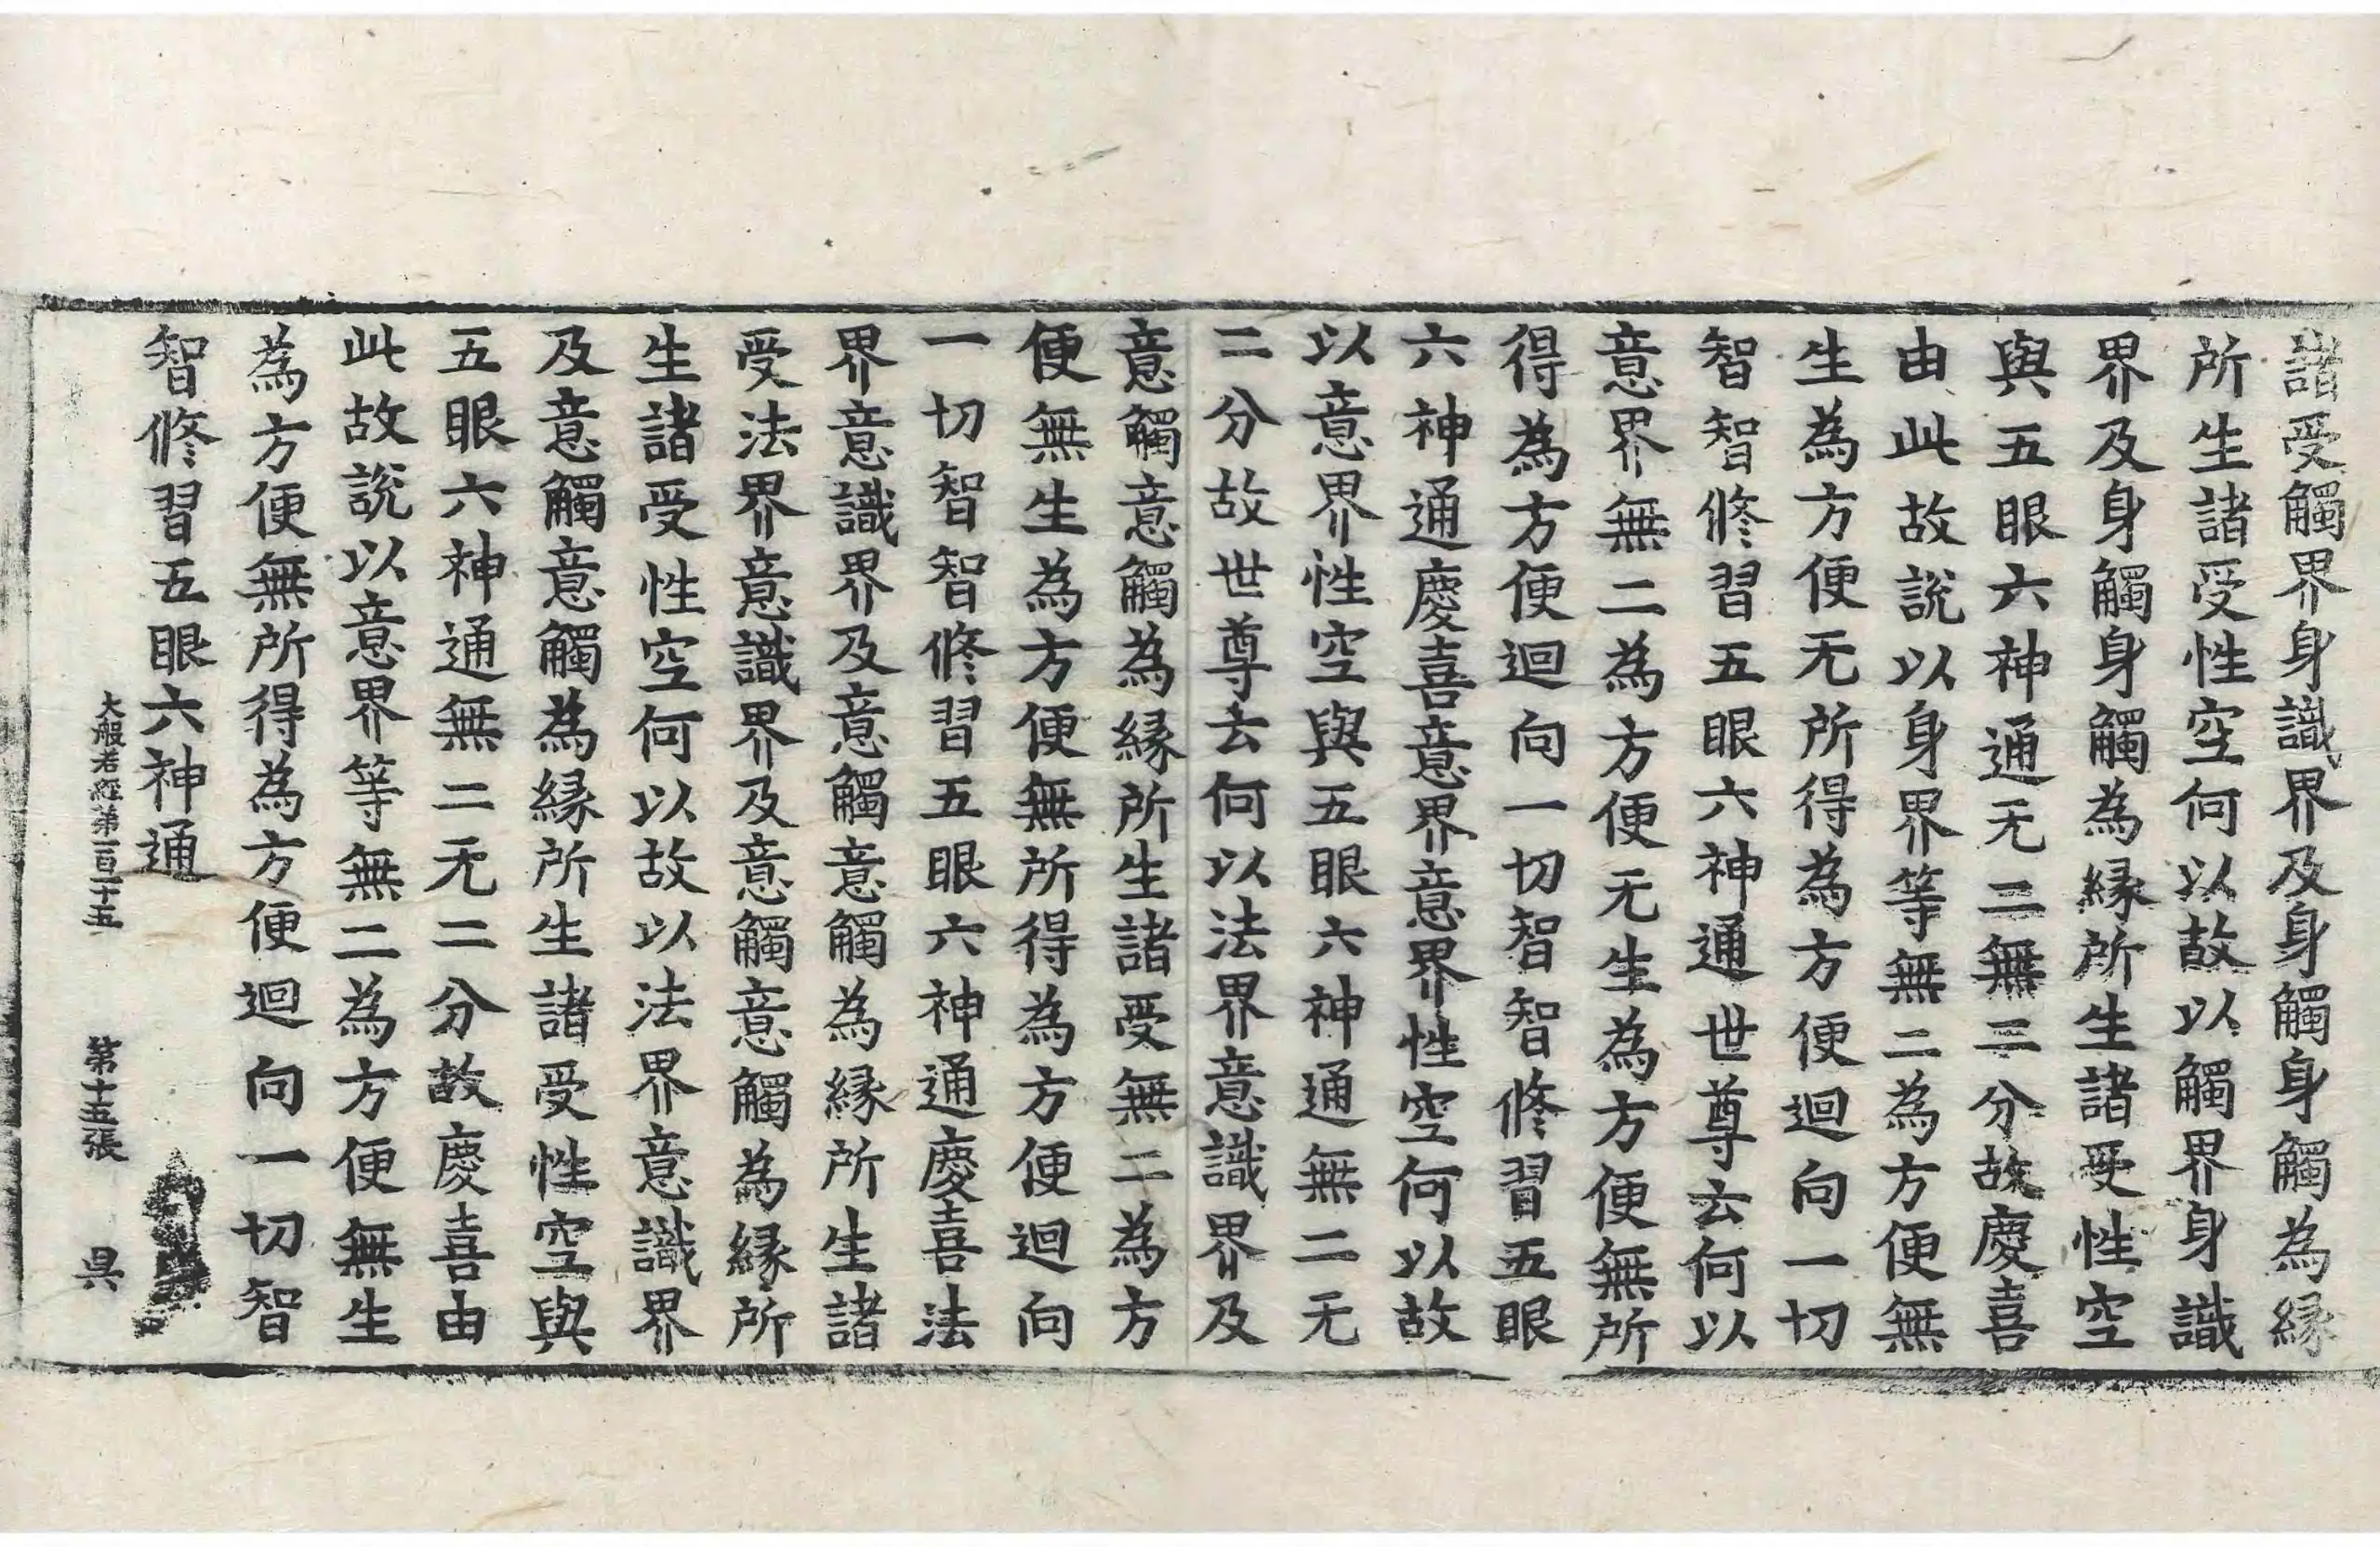 諸受觸界身識界及身觸身觸為縁
所生諸受性空何以故以觸界身識
界及身觸身觸為縁所生諸受性空
與五眼六神通无二無二分故慶喜
由此故說以身界等無二為方便無
生為方便无所得為方便迴向一切
智智修習五眼六神通世尊云何以
意界無二為方便无生為方便無所
得為方便迴向一切智智修習五眼
六神通慶喜意界意界性空何以故
以意界性空與五眼六神通無二无
二分故世尊云何以法界意識界及
意觸意觸為縁所生諸受無二為方
便無生為方便無所得為方便迴向
一切智智修習五眼六神通慶喜法
界意識界及意觸意觸為縁所生諸
受法界意識界及意觸意觸為縁所
生諸受性空何以故以法界意識界
及意觸意觸為縁所生諸受性空與
五眼六神通無二无二分故慶喜由
此故說以意界等無二為方便無生
為方便無所得為方便迴向一切智
智修習五眼六神通
大般若經第一百二十五 第十五張 昃